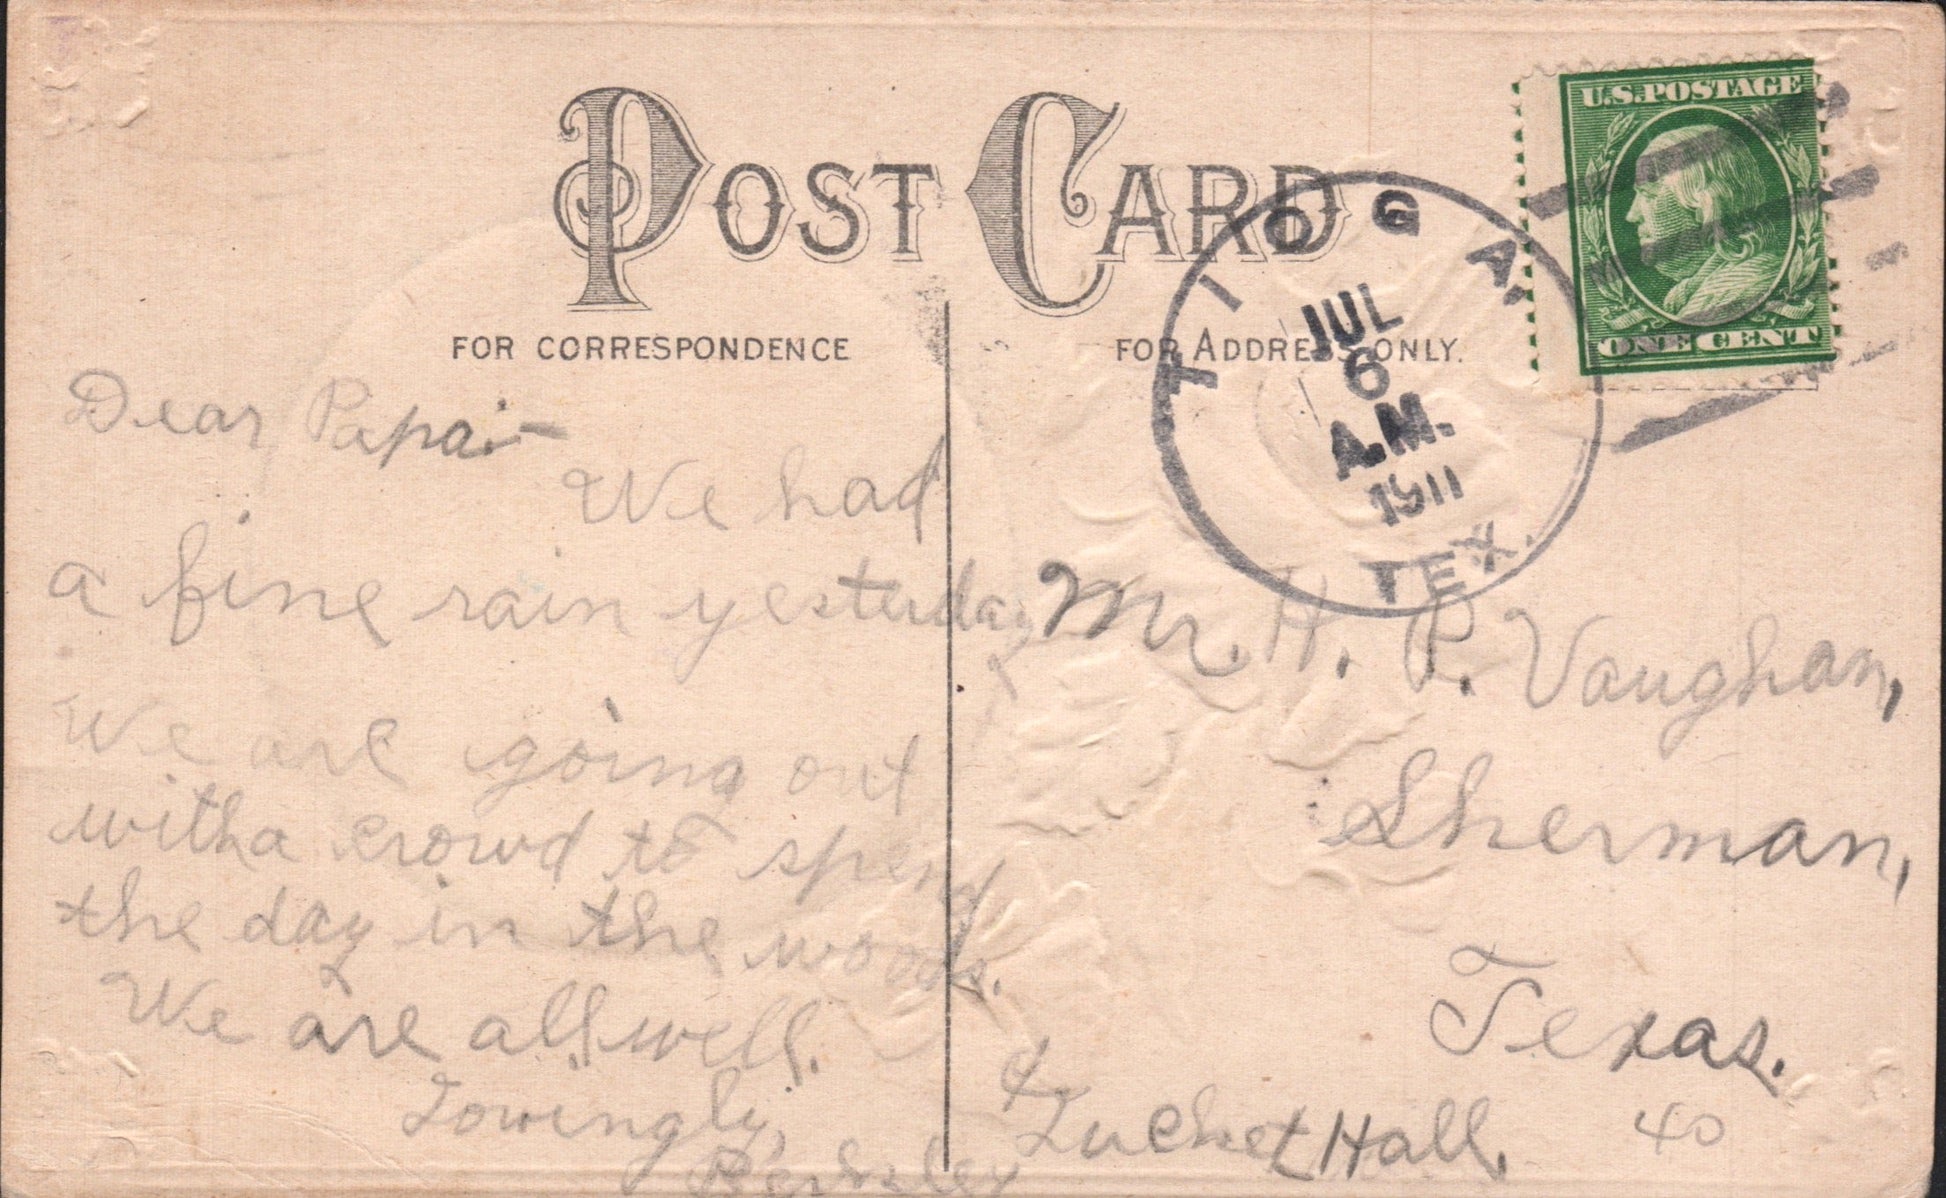 POST CARD
FOR CORRESPONDENCE
FOR ADDRESS ONLY.
U.S. POSTAGE
ONE CENT
TIOGA,
JUL
6
A.M.
1911
TEX.
Dear Papa:-
We had
a fine rain yesterday,
We are going out
with a crowd to spend
the day in the woods.
We are all well.
Lovingly,
Mr. H. P. Vaughan,
Sherman,
Texas.
Luckett Hall.
40